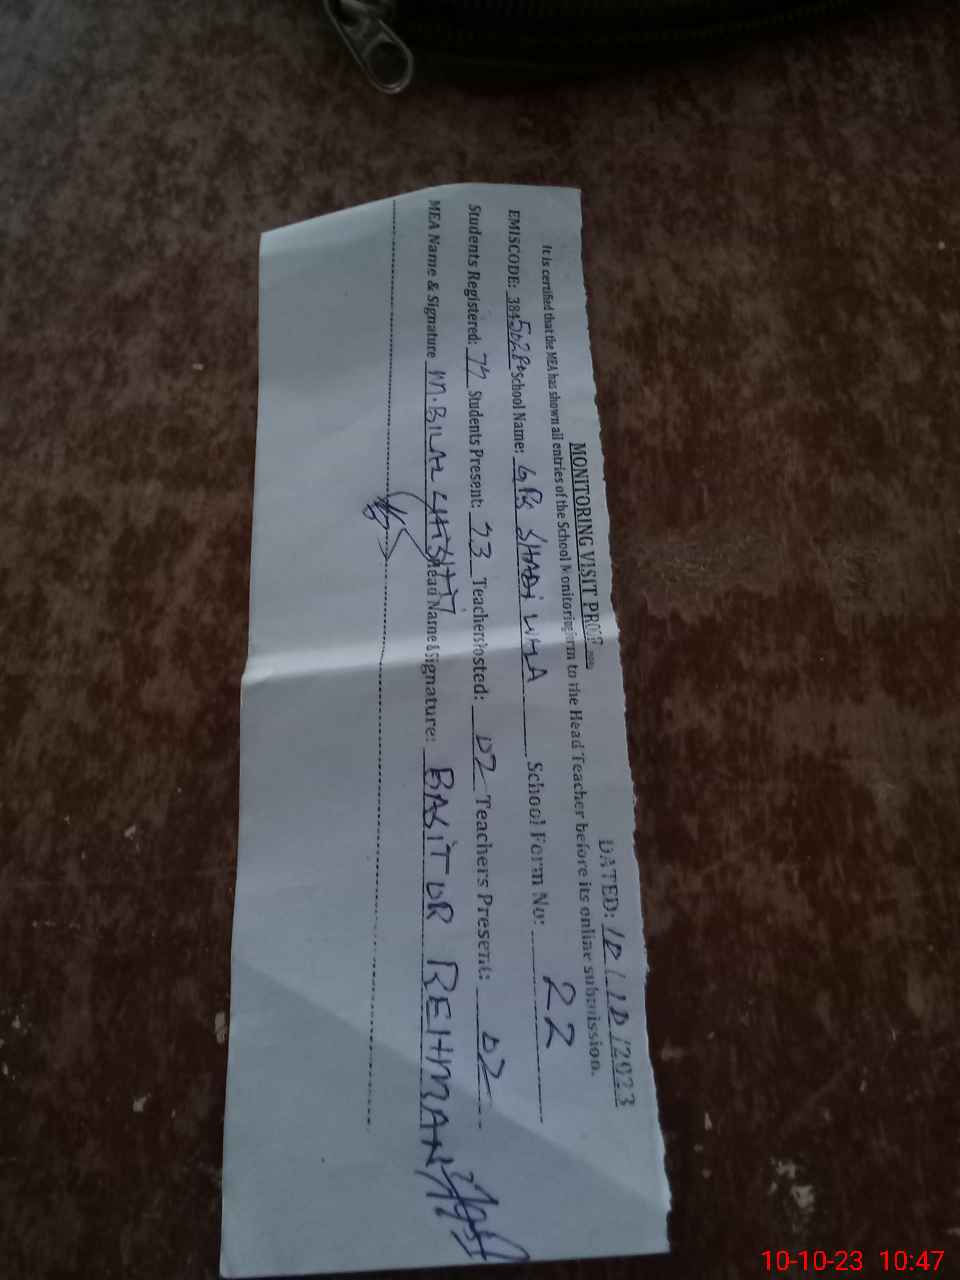 MONITORING VISIT PROOF
DATED: 10/10/2023
It is certified that the MEA has shown all entries of the School Monitoring Form to the Head Teacher before its online submission.
EMISCODE: School Name: GPS SHADI WALA School Form No: 22
Students Registered: 77 Students Present: 23 Teachers Posted: 02 Teachers Present: 02
MEA Name & Signature M. BILAL CHISHTI Head Name & Signature: BASIT UR REHMAN
10-10-23 10:47